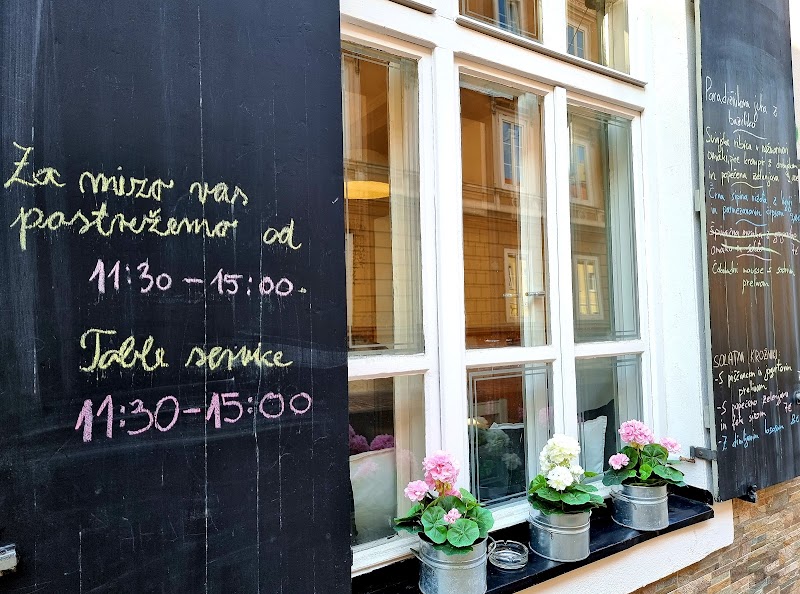 Za mizo vas
postrežemo od
11:30 - 15:00.
Table service
11:30-15:00
Paradižnikova juha z
baziliko
Svinjska ribica v
omaki, pire krompir z
in popečena zelenjava
Črna
in parmezanovim
omako
Čokoladni mousse s sadnim
prelivom
SOLATNI KROŽNIKI:
-S piščancem in jogurtovim
prelivom
-S popečeno zelenjavo
in feta sirom
-Z